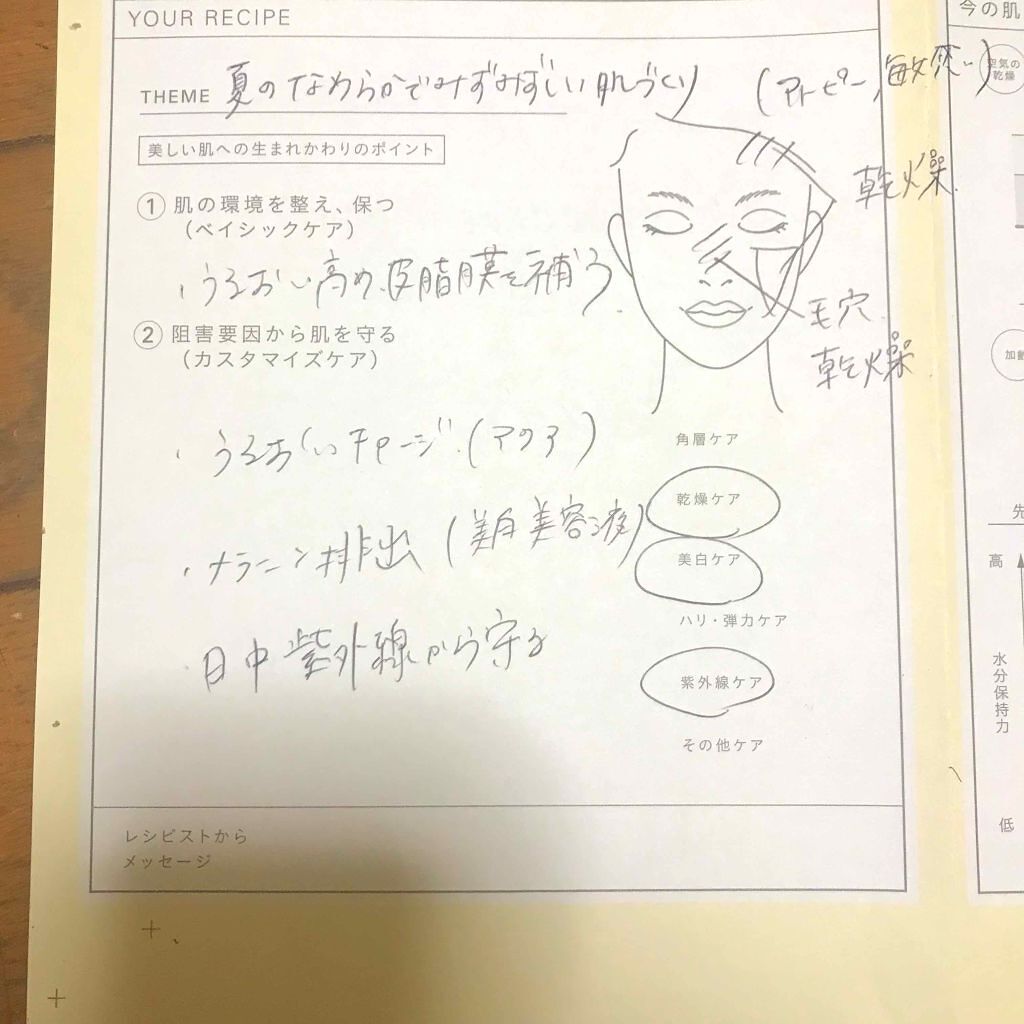 YOUR RECIPE
THEME 夏のなめらかでみずみずしい肌づくり (アトピー, 敏感
美しい肌への生まれかわりのポイント
① 肌の環境を整え、保つ
(ベイシックケア)
・うるおい高め、皮脂膜を補う
② 阻害要因から肌を守る
(カスタマイズケア)
・うるおいチャージ (アクア)
・メラニン排出 (美白美容液)
日中紫外線から守る
乾燥
毛穴
乾燥
角層ケア
乾燥ケア
美白ケア
ハリ・弾力ケア
紫外線ケア
その他ケア
レシピストから
メッセージ
今の肌
空気の
乾燥
加齢
先
高
水分保持力
低